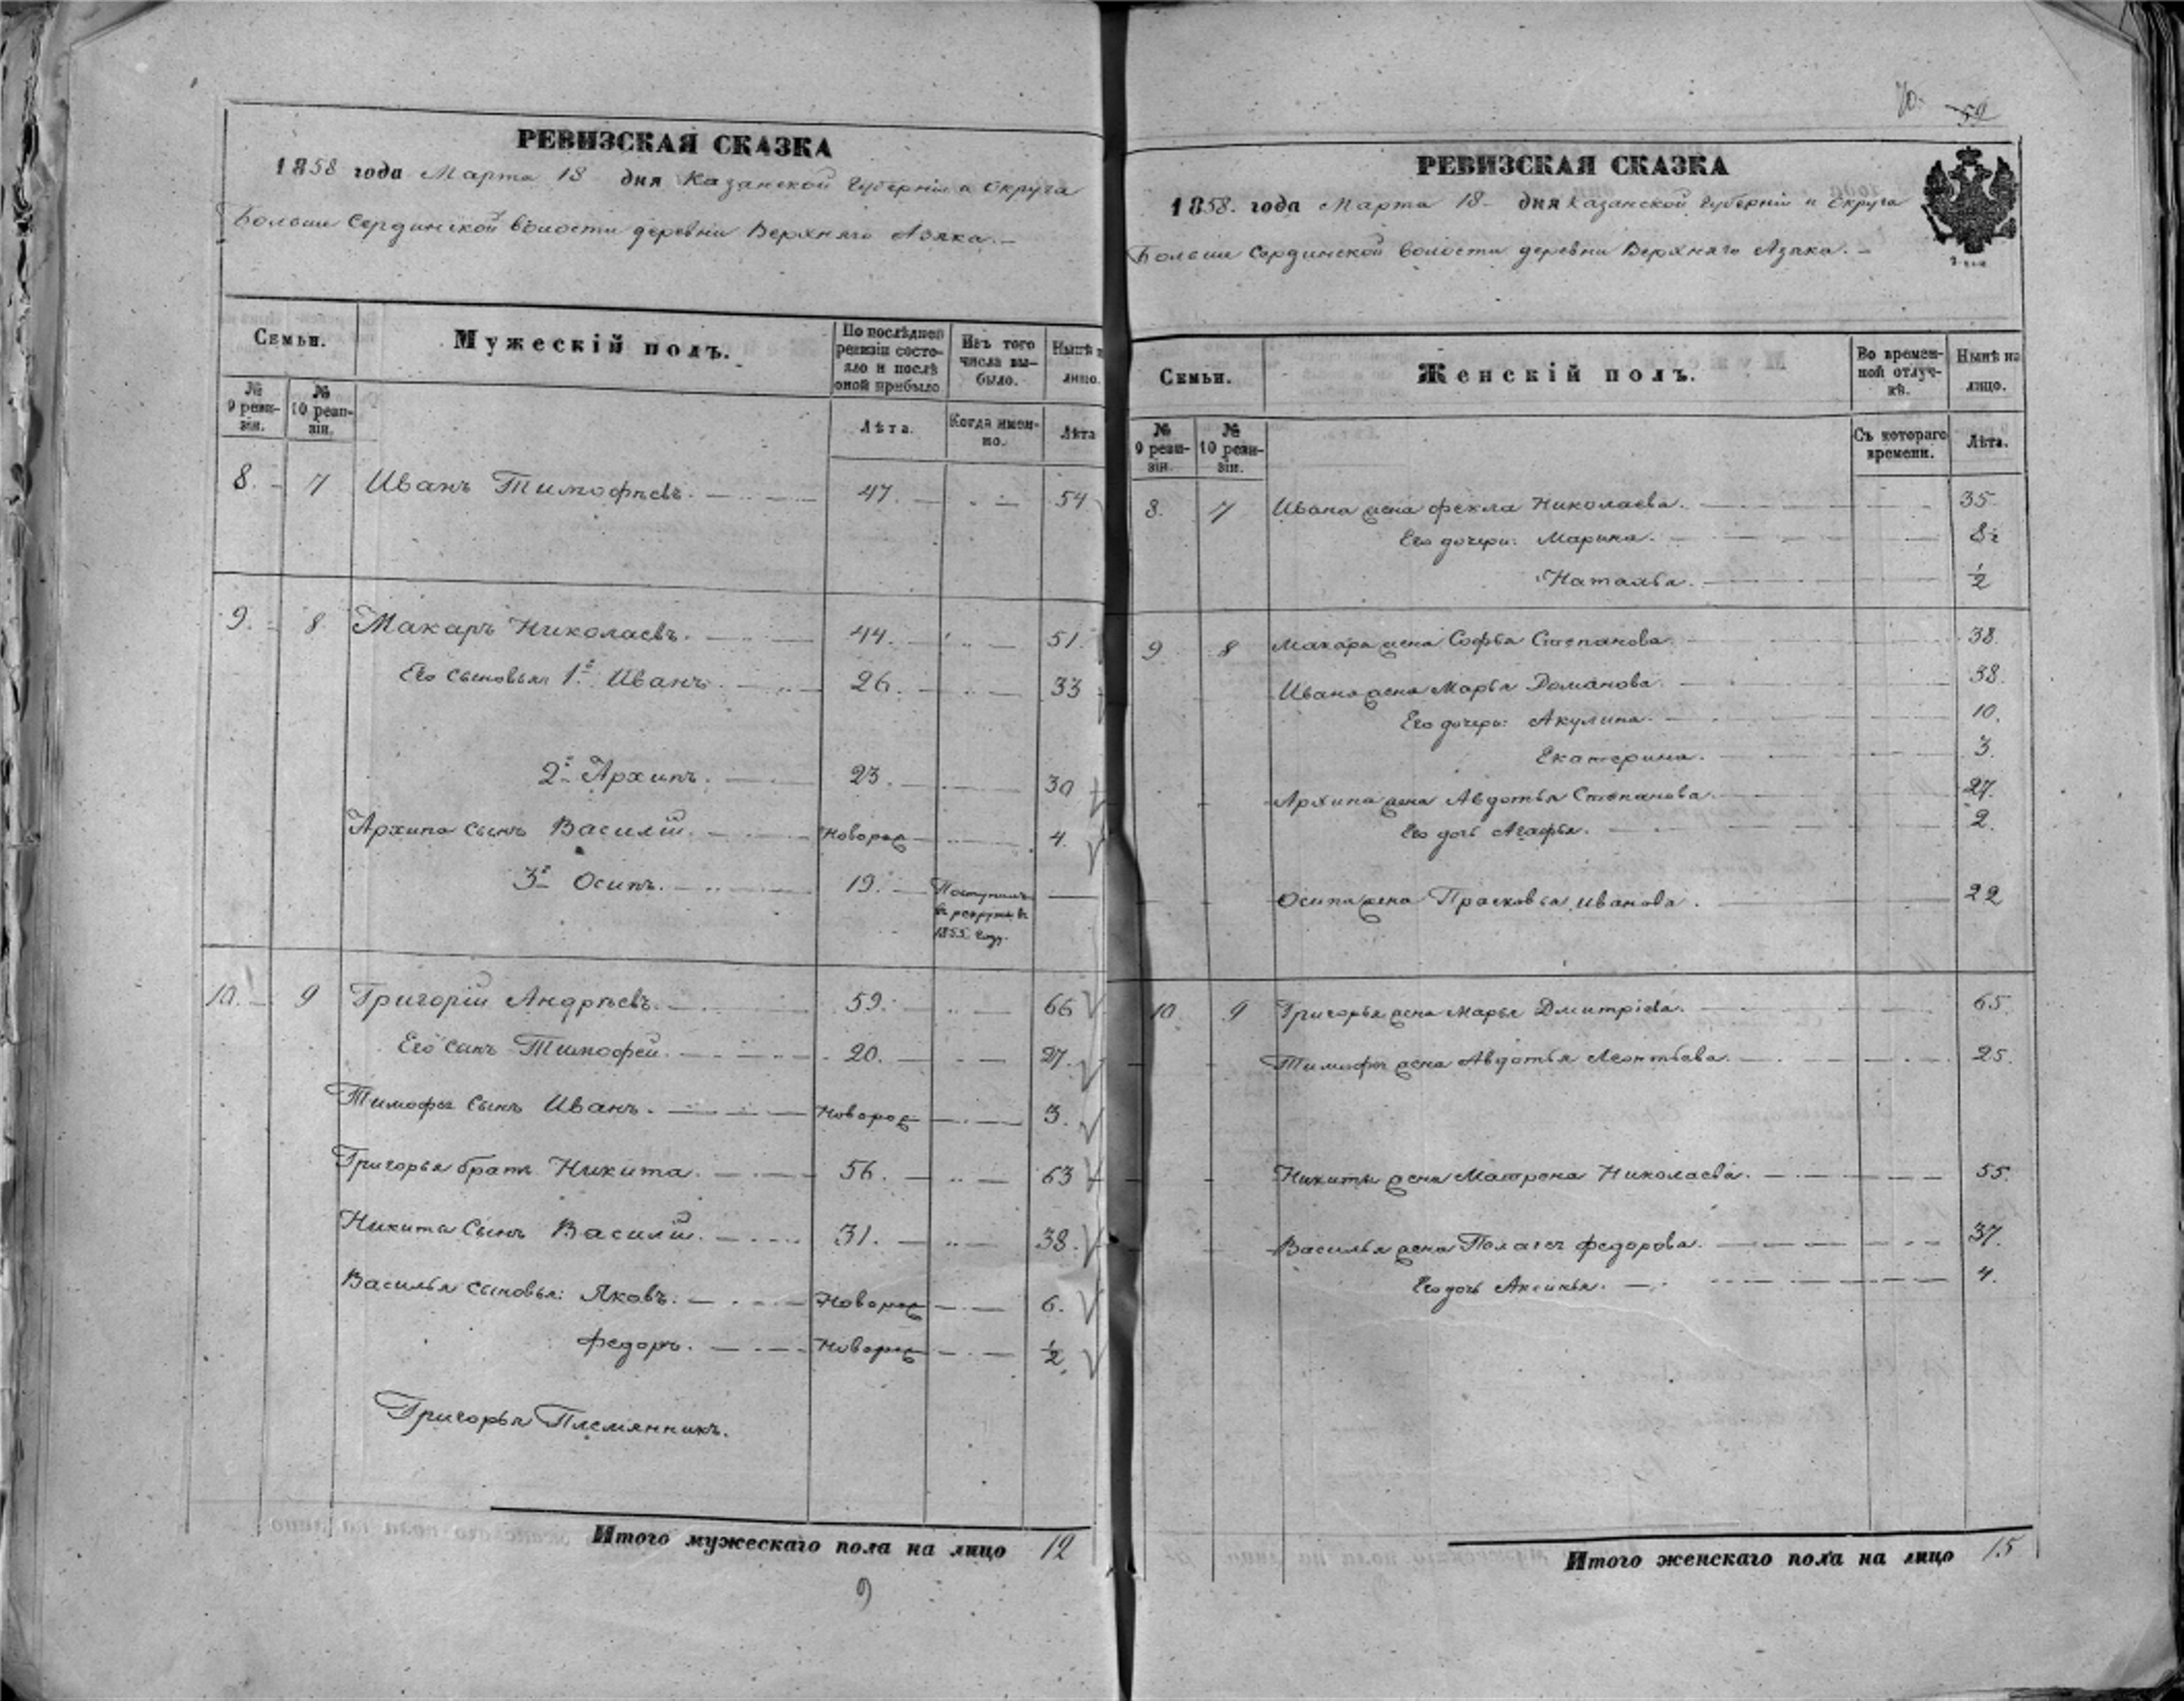 РЕВИЗСКАЯ СКАЗКА
1858 года Марта 18 дня Казанской Губерніи и Округа
Больше Сердинской волости деревни Верхняго Азяка.
Семьи.
Мужескій полъ.
По послѣдней ревизіи состояло и послѣ оной прибыло.
Изъ того числа выбыло.
Нынѣ на лицо.
№ 9 ревизіи.
№ 10 ревизіи.
Лѣта.
Когда именно.
Лѣта
8. 7 Иванъ Тимофѣевъ. 47. 54
9. 8 Макаръ Николаевъ. 44. 51.
Его сыновья 1й Иванъ. 26. 33
2й Архипъ. 23. 30
Архипа сынъ Василій. Новорож 4.
3й Осипъ. 19. Поступилъ въ рекруты въ 1855 году.
10. 9 Григорій Андрѣевъ. 59. 66
Его сынъ Тимофей. 20. 27.
Тимофея сынъ Иванъ. Новорож 3.
Григорья братъ Никита. 56. 63
Никита сынъ Василій. 31. 38.
Василья сыновья: Яковъ. Новорож 6.
Федоръ. Новорож ½
Григорья Племянникъ.
Итого мужескаго пола на лицо 12
9
70. 59
РЕВИЗСКАЯ СКАЗКА
1858. года Марта 18 дня Казанской Губерніи и Округа
Больше Сердинской волости деревни Верхняго Азяка.
Семьи.
Женскій полъ.
Во временной отлучкѣ.
Нынѣ на лицо.
№ 9 ревизіи.
№ 10 ревизіи.
Съ котораго времени.
Лѣта.
8. 7 Ивана жена Фекла Николаева. 35.
Его дочери: Марина. 8½
Наталья. ½
9. 8 Макара жена Софья Степанова. 38.
Ивана жена Марья Романова. 38.
Его дочери: Акулина. 10.
Екатерина. 3.
Архипа жена Авдотья Степанова. 27.
Его дочь Агафья. 2.
Осипа жена Прасковья Иванова. 22
10. 9 Григорья жена Марья Дмитріева. 65.
Тимофея жена Авдотья Леонтьева. 25.
Никиты жена Матрена Николаева. 55.
Василья жена Пелагея Федорова. 37.
Его дочь Аксинья. 4.
Итого женскаго пола на лицо 15